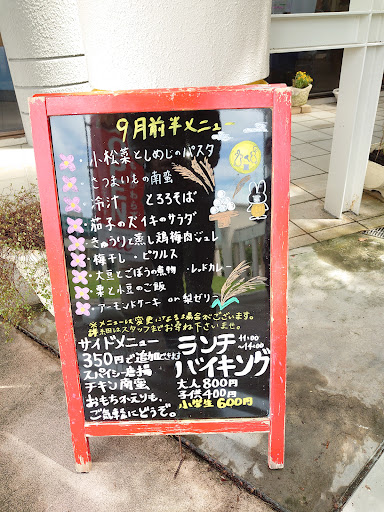 9月前半メニュー
・小松菜としめじのパスタ
・さつまいもの南蛮
・冷汁 とろろそば
・茄子のズイキのサラダ
・きゅうりと蒸し鶏梅肉ジュレ
・梅干し・ピクルス
・大豆とごぼうの煮物 ・レッドカレー
・栗と小豆のご飯
・アーモンドケーキ or 梨ゼリー
※メニューは変更になる場合がございます。
詳細はスタッフまでお尋ね下さいませ。
サイドメニュー
350円で追加できます
スパイシー唐揚
チキン南蛮
おもちかえりも、
ご気軽にどうぞ。
ランチ 11:00〜14:00
バイキング
大人800円
子供400円
小学生600円